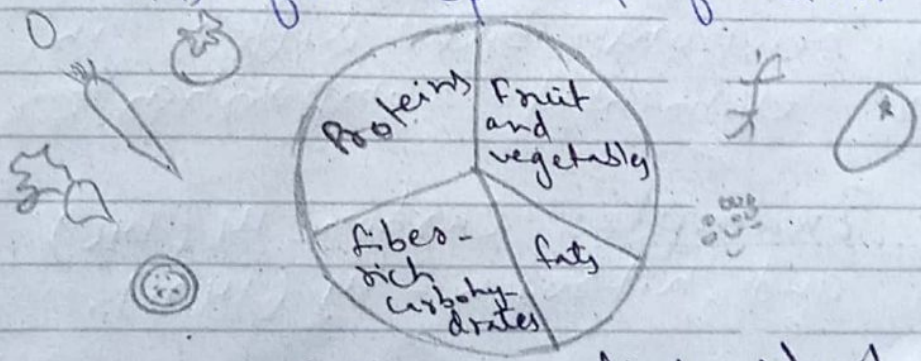 Proteins
Fruit
and
vegetables
fiber-
rich
carbohy-
drates
fats